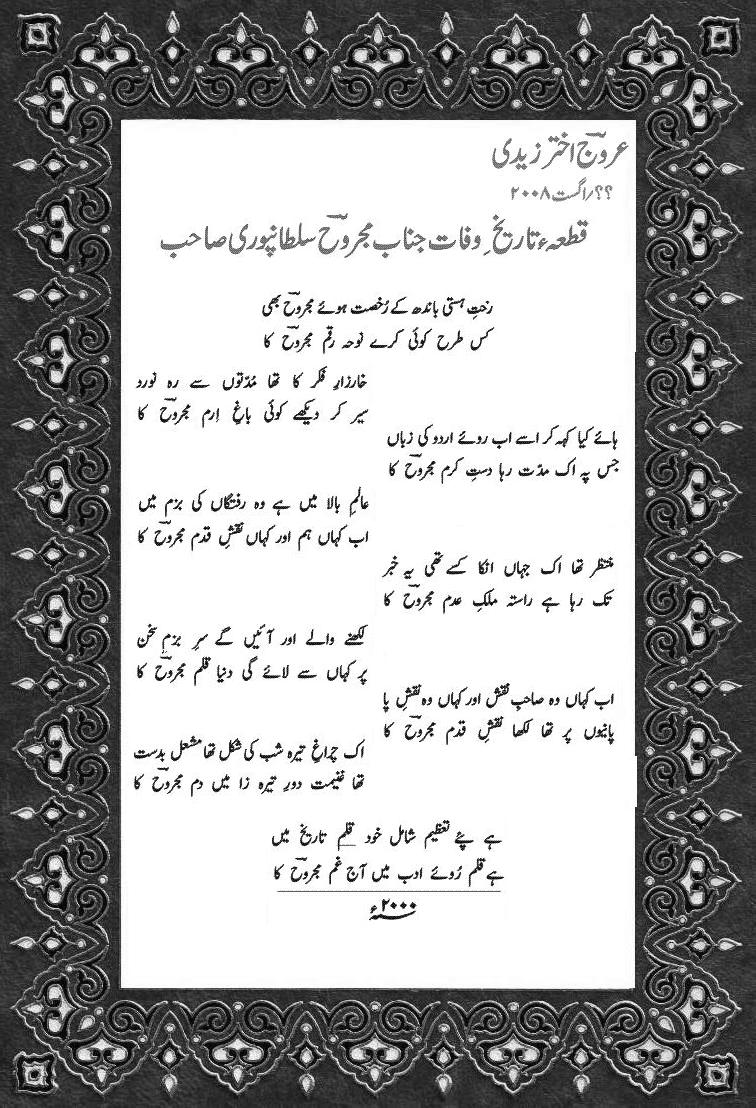 عروج اختر زیدی
؟؟/اگست ۲۰۰۸
قطعہء تاریخِ وفات جناب مجروح سلطانپوری صاحب
رختِ ہستی باندھ کے رُخصت ہوئے مجروح بھی
کس طرح کوئی کرے نوحہ رقم مجروح کا
خارزارِ فکر کا تھا مُدّتوں سے رہ نورد
سیر کر دیکھے کوئی باغِ اِرم مجروح کا
ہائے کیا کہہ کر اسے اب روئے اردو کی زباں
جس پہ اک مدّت رہا دستِ کرم مجروح کا
عالمِ بالا میں ہے وہ رفتگاں کی بزم میں
اب کہاں ہم اور کہاں نقشِ قدم مجروح کا
منتظر تھا اک جہاں انکا کسے تھی یہ خبر
تک رہا ہے راستہ ملکِ عدم مجروح کا
لکھنے والے اور آئیں گے سرِ بزمِ سخن
پر کہاں سے لائے گی دنیا قلم مجروح کا
اب کہاں وہ صاحبِ نقش اور کہاں وہ نقشِ پا
پانیوں پر تھا لکھا نقشِ قدم مجروح کا
اک چراغِ تیرہ شب کی شکل تھا مشعل بدست
تھا غنیمت دورِ تیرہ زا میں دم مجروح کا
ہے پئے تعظیم شامل خود قلمِ تاریخ میں
ہے قلم رُوئے ادب میں آج غم مجروح کا
۲۰۰۰ء